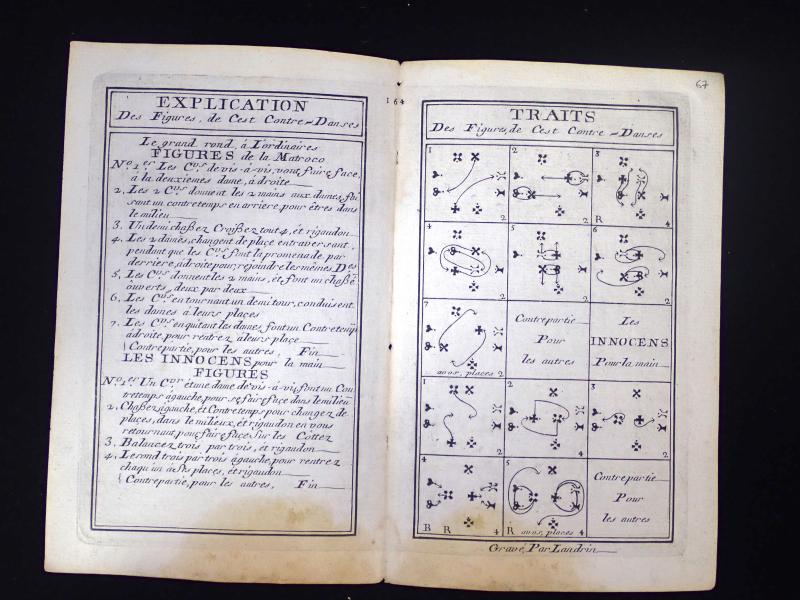 EXPLICATION
Des Figures, de Cest Contre=Danses
Le grand rond, à Lordinaires
FIGURES de la Matroco
Nos. 1er Les Crs. de vis-à-vis, vont faire face,
à la deuxiemes dame, à droite
2, Les 2 Crs. donnent les 2 mains aux dames, fai
sant un contretemps en arriere, pour êtres dans
le milieu
3. Un demi chaßez Croißez tout 4, et rigaudon
4. Les 2 dames, changent de place en traversant,
pendant que les Crs. font la promenade par
derriere, à droite pour, rejoindre les mêmes, Des
5, Les Crs. donnent les 2 mains, et font un chaßé
ouverts, deux par deux
6. Les Crs. en tournant un demi tour, conduisent
les dames à leurs places
7. Les Crs. en quitant les dames, font un Contretemp
à droite, pour rentrez à leurs place
Contrepartie, pour les autres, Fin
LES INNOCENS pour la main
FIGURES
Nos. 1er Un Cr. et une dame de vis-à-vis, font un Con
tretemps à gauche, pour se faire face dans le milieu
2, Chaßez à gauche, et Contretemps pour changez de
places, dans le milieux, et rigaudon en vous
retournant, pour faire face, sur les Cottez
3. Balancez trois par trois, et rigaudon
4, Le rond trois par trois à gauche, pour rentrez
chaqu'un à ses places, et rigaudon
Contrepartie, pour les autres, Fin
164
67
TRAITS
Des Figures, de Cest Contre=Danses
1 2 3
2 2 R 4
4 5 6
2 2 2
7
aux, places 2
Contrepartie
Pour
les autres
Les
INNOCENS
Pour la main
1 2 3
2 2 2
4 5
B R 4 R aux, places 4
Contrepartie
Pour
les autres
Gravé, Par Landrin